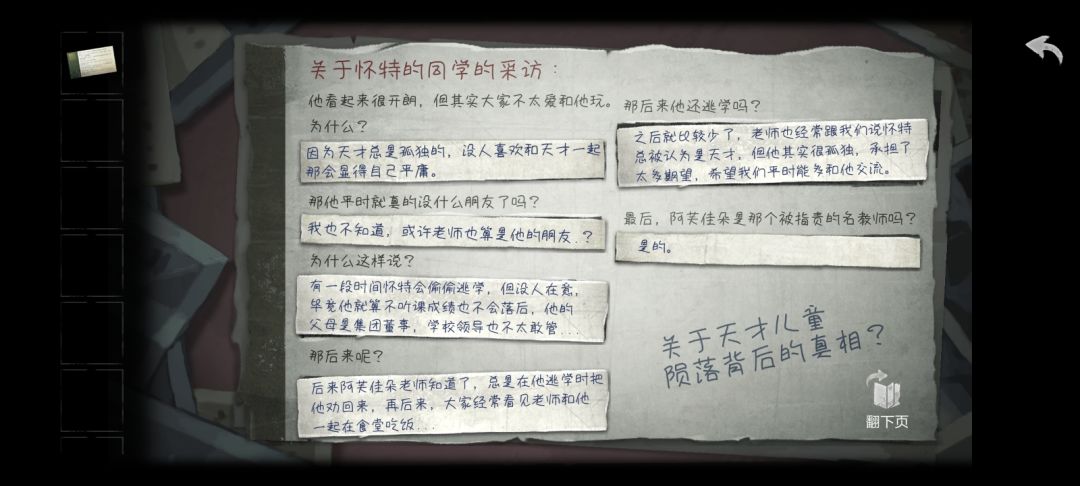 关于怀特的同学的采访：
他看起来很开朗，但其实大家不太爱和他玩。
为什么？
因为天才总是孤独的，没人喜欢和天才一起
那会显得自己平庸。
那他平时就真的没什么朋友了吗？
我也不知道，或许老师也算是他的朋友..？
为什么这样说？
有一段时间怀特会偷偷逃学，但没人在意，
毕竟他就算不听课成绩也不会落后，他的
父母是集团董事，学校领导也不太敢管...
那后来呢？
后来阿芙佳朵老师知道了，总是在他逃学时把
他劝回来，再后来，大家经常看见老师和他
一起在食堂吃饭...
那后来他还逃学吗？
之后就比较少了，老师也经常跟我们说怀特
总被认为是天才，但他其实很孤独，承担了
太多期望，希望我们平时能多和他交流。
最后，阿芙佳朵是那个被指责的名教师吗？
是的。
关于天才儿童
陨落背后的真相？
翻下页